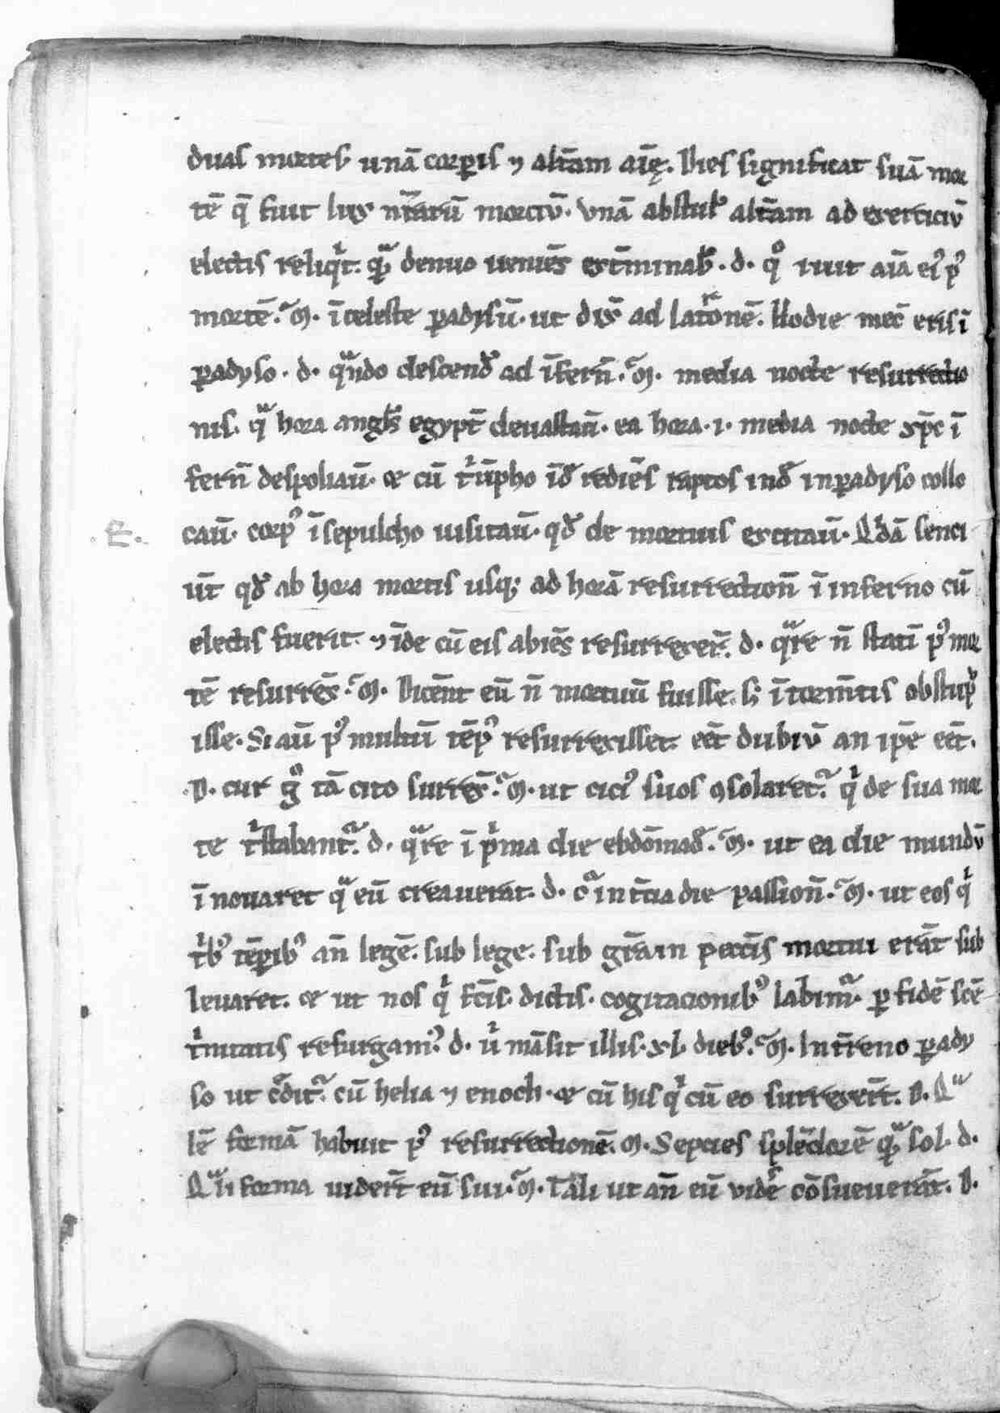 duas mortes. unā corꝑis ⁊ alt̄am aīę. Dies significat suā mor
tē q̄ fuit lux nr̄arū mortiū. vnā abstul᷒ alt̄am ad exerticiū
electis reliqͥt. qͣ denuo ueniēs ext̄minab᷒. d. qͦ iuit aīa eiꝰ pꝰ
mortē. m̄. ī celeste ꝑadysū. ut dix̄ ad latͦonē. Hodie mec̄ eris ī
ꝑadyso. d. qͣndo descend᷒ ad īfern̄. m̄. media nocte resurrectio
nis. qͣ hora angl᷒s egypt̄ deuastaū. ea hora .i. media nocte xp̄c ī
fern̄ despoliaū. ⁊ cū tͥūpho īd᷒ rediēs raptos ind᷒ in ꝑadyso collo
caū. corpꝰ ī sepulcho uisitaū. qd᷒ de mortuis excitaū. Qͥdā senci
.E.
ūt qd᷒ ab hora mortis usqꝫ ad horā resurrection̄ ī inferno cū
electis fuerit. ⁊ īde cū eis abiēs resurrexer̄. d. qͣre n̄ statī pꝰ mor
tē resurrex̄. m̄. Dicēnt eū n̄ mortuū fuisse. s; ī torm̄tis obstup᷒
isse. Si aū pꝰ multū tēpꝰ resurrexisset. eēt dubiū an ip̄e eēt.
D. cur gͦ tā cito surrex̄. m̄. ut ciciꝰ suos ꝯsolaretᷣ. qͥ de sua mor
te tͥstabantᷣ. d. qͣre ī pͥma die ebdōmad᷒. m̄. ut ea die mundū
ī nouaret qͣ eū creauerat. d. cͣ in t̄cia die passion̄. m̄. ut eos qͥ
tͥbꝰ tēꝑibꝰ an̄ legē. sub lege. sub gr̄a in pecc̄is mortui erāt sub
leuaret. ⁊ ut nos qͥ fc̄is. dictis. cogitacionibꝰ labimᷣ. ꝑ fidē scē
tͥnitatis resurgamꝰ. d. uͥ māsit illis .xl. diebꝰ. m̄. In t̄reno ꝑady
so ut cͦditᷣ. cū helia ⁊ enoch. ⁊ cū his qͥ cū eo surrexer̄t. D. Qͣ
lē formā habuit pꝰ resurrectionē. m̄. Septies splēdorē qͣ sol. d.
Qͣli forma uider̄t eū sui. m̄. Tali ut an̄ eū vidēr cōsueuerāt. D.